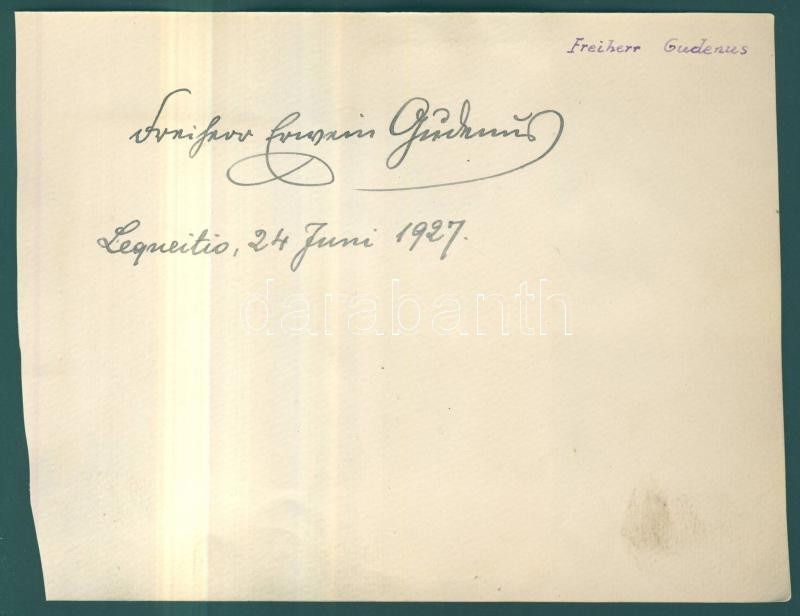 Freiherr Gudenus
Freiherr Erwein Gudenus
Lequeitio, 24 Juni 1927.
darabanth